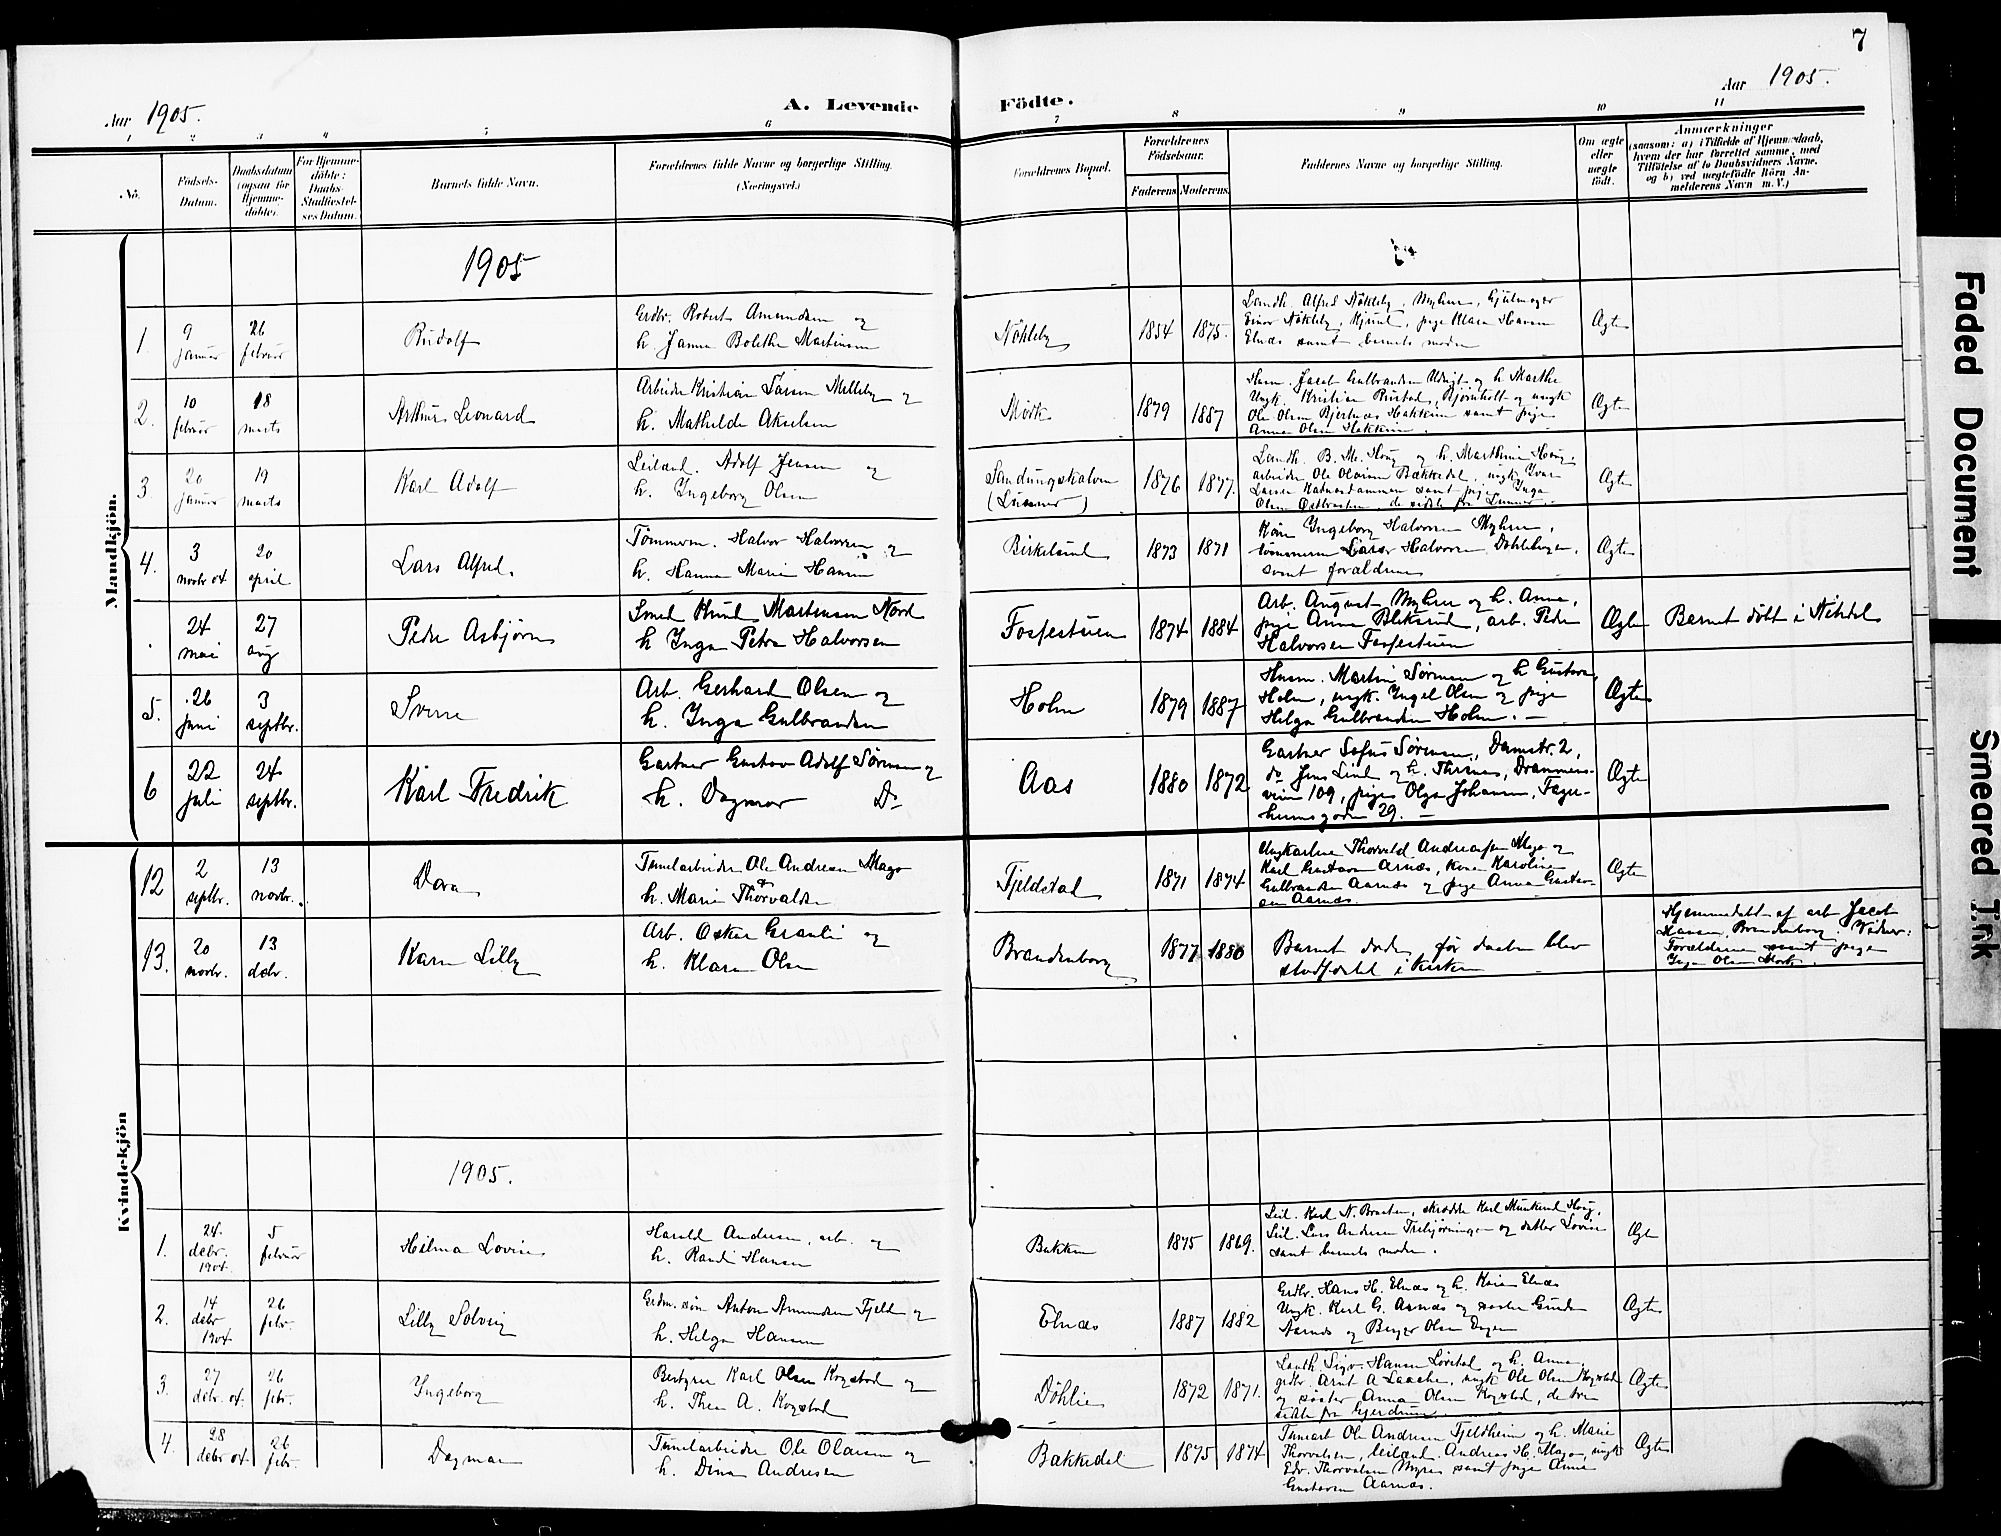 7
Aar 1905.
A. Levende Födte.
Aar 1905.
1 2 3 4 5 6 7 8 9 10 11
No.
Födsels-Datum.
Daabsdatum (ogsaa for Hjemmedöbte).
For Hjemmedöbte: Daabs-Stadfæstelses Datum.
Barnets fulde Navn.
Forældrenes fulde Navne og borgerlige Stilling. (Næringsvei.)
Forældrenes Bopæl.
Forældrenes Födselsaar.
Faderens Moderens.
Faddernes Navne og borgerlige Stilling.
Om ægte eller uægte födt.
Anmærkninger
(saasom: a) i Tilfælde af Hjemmedaab, hvem der har forrettet samme, med Tilföielse af to Daabsvidners Navne, og b) ved uægtefödte Börn Anmelderens Navn m. V.)
Mandkjön.
1905
1. 9 januar 26 februar Rudolf
Erdbr. Robert Amundsen og
h. Janna Bolethe Martinsen
Nökleby 1854 1875.
Landh. Alfred Nökleby, Myhrer, Hjulmager
Einar Nökleby, Hjund, pige Klara Hansen
Elnæs samt barnets moder
Ægte
2. 10 februar 18 marts Arthur Leonard
Arbeider Kristian Larsen Melleby og
h. Mathilde Akselsen
Mörk 1879 1887
Husm. Jacob Gulbrandsen Udsigt og h. Marthe
Ungk. Kristian Rustad, Bjornholt og ungk
Ole Olsen Bjertnæs Hakkim samt pige
Anna Olsen Hakkim.
Ægte
3 20 januar 19 marts Karl Adolf
Leilænd. Adolf Jensen og
h. Ingeborg Olsen
Sandungskalven
(Lunner) 1876 1877.
Landh. B. M. Haug og h. Marthine Haug,
arbeider Ole Olavsen Bakkedal, ungk. Ivar
Larsen Katnosdammen samt pige Inga
Olsen Østbraaten, de sidste fra Lunner.
Ægte
4. 3 novbr 04 20 april Lars Alfred.
Tömmerm. Halvor Halvorsen og
h. Hanna Marie Hansen
Birkelund 1873 1871
Kone Ingeborg Halvorsen Myhrer,
tömmerm Lars Halvorsen Dohlehagen,
samt forældrene
Ægte
24 mai 27 aug Peder Asbjörn
Smed Knud Martinsen Nord
h Inga Petra Halvorsen
Fosfestuen 1874 1884
Arb. August Myhrer og h. Anna,
pige Anna Bliksrud, arb. Peder
Halvorsen Fosfestuen
Ægte Barnet döbt i Nitedal
5. 26 juni 3 septbr. Sverre
Arb. Gerhard Olsen og
h. Inga Gulbrandsen
Holm 1879 1887
Husm. Martin Sörensen og h Gustava
Holm, ungk. Ingel Olsen og pige
Helga Gulbrandsen Holm. —
Ægte
6 22 juli 24 septbr. Karl Fredrik
Gartner Gustav Adolf Sörensen og
h. Dagmar Do
Aas 1880 1872
Gartner Sofus Sörensen, Damstr. 2,
do Jens Lind og h. Thrines, Drammensveien 109, pige Olga Johansen, Fagerheimsgaden 29. —
Ægte
Kvindekjön
12 2 septbr. 13 novbr. Dora
Tunelarbeider Ole Andresen Mago
h. Marie Thorvaldsen
Fjeldstad 1871 1874
Ungkarlene Thorvald Andreassen Mago og
Karl Gustavsen Aarnæs, kone Karoline
Gulbrandsen Aarnæs og pige Anna Gustavsen Aarnæs.
Ægte
13. 20 novbr. 13 debr. Karen Lilly
Arb. Oskar Granli og
h. Klara Olsen
Brandenborg 1877 1880
Barnet döde, för daaben blev
stadfæstet i kirken
Hjemmedöbt af arb Jacob
Hansen, Brandenborg. Vidner:
Forældrene samt pige
Inga Olsen Mörk.
1905.
1. 24. debr. 1904. 5 februar Hilma Lovise
Harald Andersen, arb. og
h. Randi Hansen
Bakken 1875 1869.
Leil. Karl N. Braaten, skrædder Karl Murkerud Haug,
Leil. Lars Andersen Trehjørningen og datter Lovise
samt barnets moder.
Ægte
2. 14 debr 1904 26 febr. Lilly Solveig
Grdm. sön Anton Amundsen Fjeld og
h. Helga Hansen
Elnæs 1887 1882
Erdbr. Hans H. Elnæs og h. Karen Elnæs
Ungk. Karl G. Aarnæs og söster Gunda
Aarnæs og Birger Olsen
Ægte
3. 27 debr. 04. 26 febr. Ingeborg
Bestyrer Karl Olsen Kogstad og
h. Thea A. Kogstad
Döhlie 1872 1871.
Landh. Sigv. Hansen Lörstad og h. Anna,
grdbr. Arnt A Laache, ungk Ole Olsen Kogstad
og söster Anna Olsen Kogstad, de tre
sidste fra Gjerdrum.
Ægte
4. 28 debr 04 26 febr. Dagmar
Tunelarbeider Ole Olavsen og
h. Dina Andresen
Bakkedal 1875 1874
Tunearb Ole Andresen Fjeldheim og h. Marie
Thorvaldsen, leilænd. Andreas H. Mago, ungk
Edv. Thorvaldsen Myrer samt pige Anna
Gustavsen Aarnæs.
Ægte
Faded Document
Smeared Ink